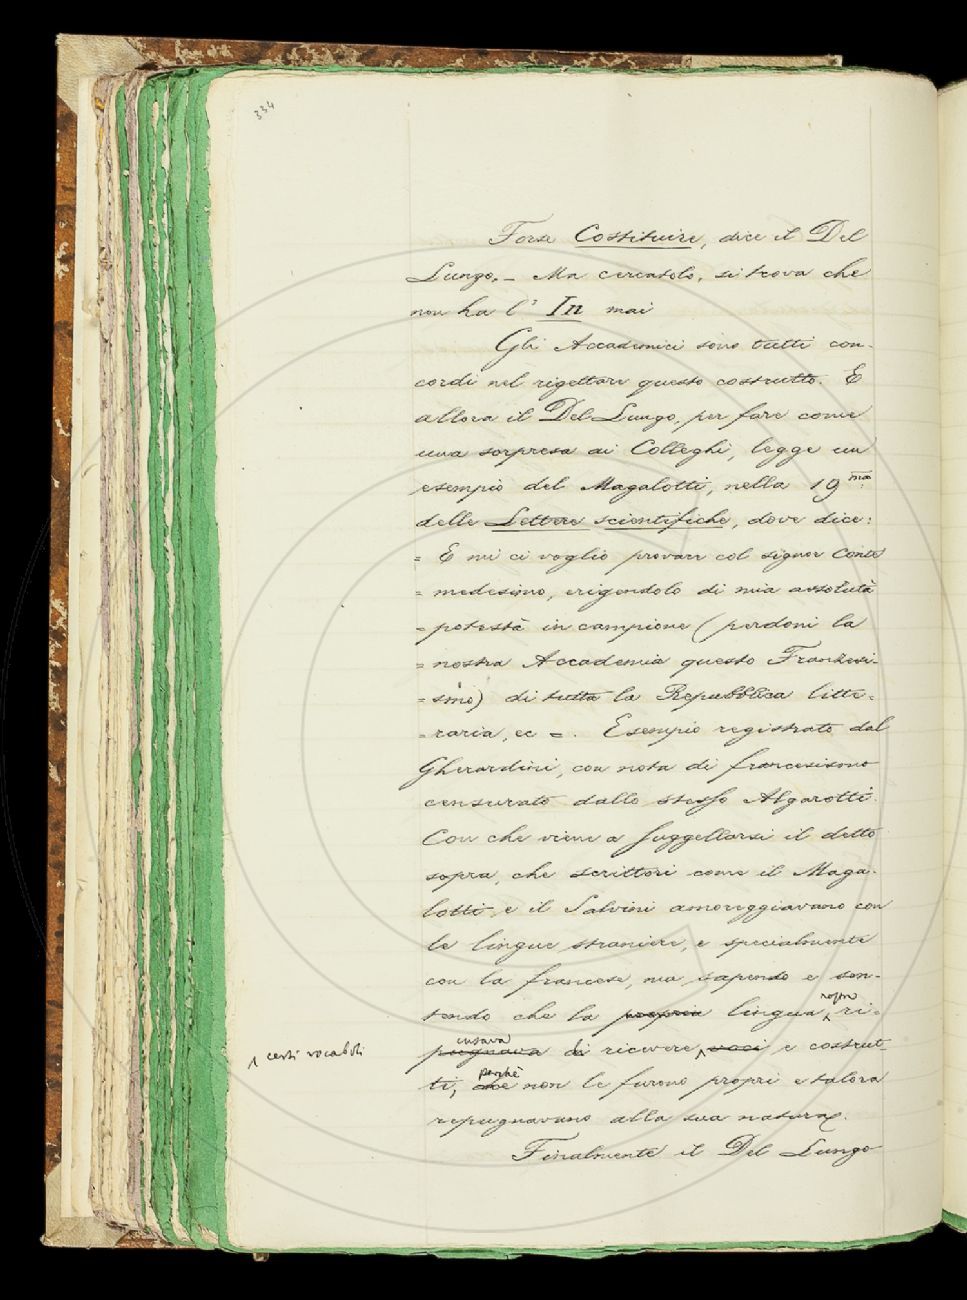 334
Forse Costituire, dice il Del
Lungo. – Ma cercatolo, si trova che
non ha l' In mai
Gli Accademici sono tutti con-
cordi nel rigettare questo costrutto. E
allora il Del Lungo, per fare come
una sorpresa ai Colleghi, legge un
esempio del Magalotti, nella 19ma
delle Lettere scientifiche, dove dice:
= E mi ci voglio provare col signor Conte
= medesimo, erigendolo di mia assoluta
= potestà in campione (perdoni la
= nostra Accademia questo Franzesi-
= smo) di tutta la Repubblica litte-
= raria, ec =. Esempio registrato dal
Gherardini, con nota di francesismo
censurato dallo stesso Algarotti.
Con che viene a suggellarsi il detto
sopra, che scrittori come il Maga-
lotti e il Salvini amoreggiavano con
le lingue straniere, e specialmente
con la francese, ma sapendo e sen-
tendo che la propria lingua nostra ri-
pugnava cusava di ricevere voci e costrut-
^ certi vocaboli
ti, che perchè non le furono propri e talora
repugnavano alla sua natura.
Finalmente il Del Lungo